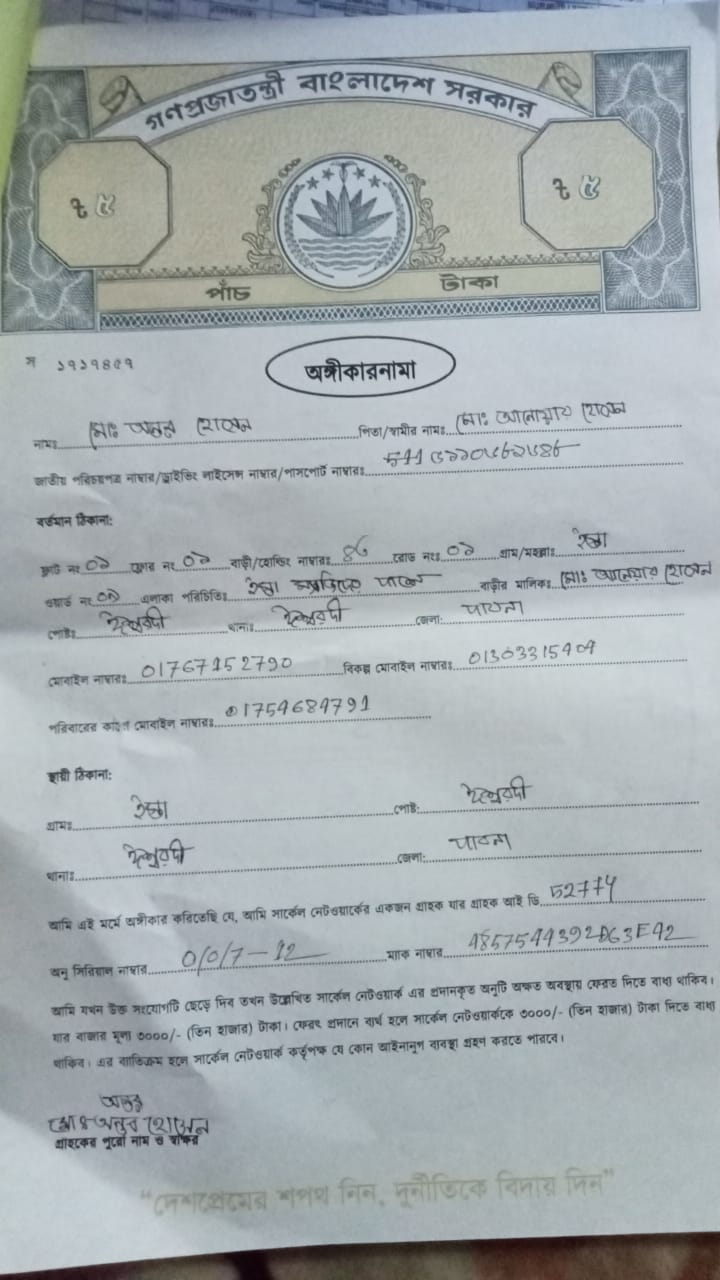 গণপ্রজাতন্ত্রী বাংলাদেশ সরকার
৳ ৫ ৳ ৫
পাঁচ টাকা
অঙ্গীকারনামা
নামঃ মোঃ হোসেন পিতা/স্বামীর নামঃ মোঃ আনোয়ার হোসেন
জাতীয় পরিচয়পত্র নাম্বার/ড্রাইভিং লাইসেন্স নাম্বার/পাসপোর্ট নাম্বারঃ
বর্তমান ঠিকানা:
ফ্লাট নং ০১ ফ্লোর নং ০১ বাড়ী/হোল্ডিং নাম্বারঃ রোড নংঃ ০১ গ্রাম/মহল্লাঃ
ওয়ার্ড নং ০১ এলাকা পরিচিতিঃ পাশে বাড়ীর মালিকঃ মোঃ আনোয়ার হোসেন
পোষ্টঃ ঈশ্বরদী থানাঃ ঈশ্বরদী জেলা: পাবনা
মোবাইল নাম্বারঃ 01767152790 বিকল্প মোবাইল নাম্বারঃ
পরিবারের কারো মোবাইল নাম্বারঃ 01754684791
স্থায়ী ঠিকানা:
গ্রামঃ পোষ্ট: ঈশ্বরদী
থানাঃ ঈশ্বরদী জেলা: পাবনা
আমি এই মর্মে অঙ্গীকার করিতেছি যে, আমি সার্কেল নেটওয়ার্কের একজন গ্রাহক যার গ্রাহক আই ডি 52774
অনু সিরিয়াল নাম্বার 0/0/7-12 ম্যাক নাম্বার
আমি যখন উক্ত সংযোগটি ছেড়ে দিব তখন উল্লেখিত সার্কেল নেটওয়ার্ক এর প্রদানকৃত অনুটি অক্ষত অবস্থায় ফেরত দিতে বাধ্য থাকিব।
যার বাজার মূল্য ৩০০০/- (তিন হাজার) টাকা। ফেরৎ প্রদানে ব্যর্থ হলে সার্কেল নেটওয়ার্ককে ৩০০০/- (তিন হাজার) টাকা দিতে বাধ্য
থাকিব। এর ব্যতিক্রম হলে সার্কেল নেটওয়ার্ক কর্তৃপক্ষ যে কোন আইনানুগ ব্যবস্থা গ্রহন করতে পারবে।
মোঃ হোসেন
গ্রাহকের পুরো নাম ও স্বাক্ষর
"দেশপ্রেমের শপথ নিন, দুর্নীতিকে বিদায় দিন"